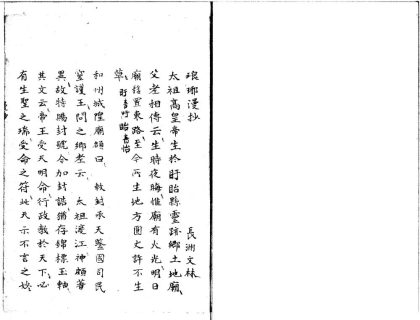 琅琊漫抄
長洲文林
太祖高皇帝生於盱眙縣靈跡鄉土地廟
父老相傳云生時夜晦惟廟有火光明日
廟徙置東路至今所生地方圓丈許不生
草盱音吁眙音怡
和州城隍廟額曰　敕封承天鑒國司民
靈護王問之鄉老云　太祖渡江神顯著
異故特賜封號今加封誥猶存錦標玉軸
其文云帝王受天明命行政教於天下必
有生聖之瑞受命之符此天示不言之妙